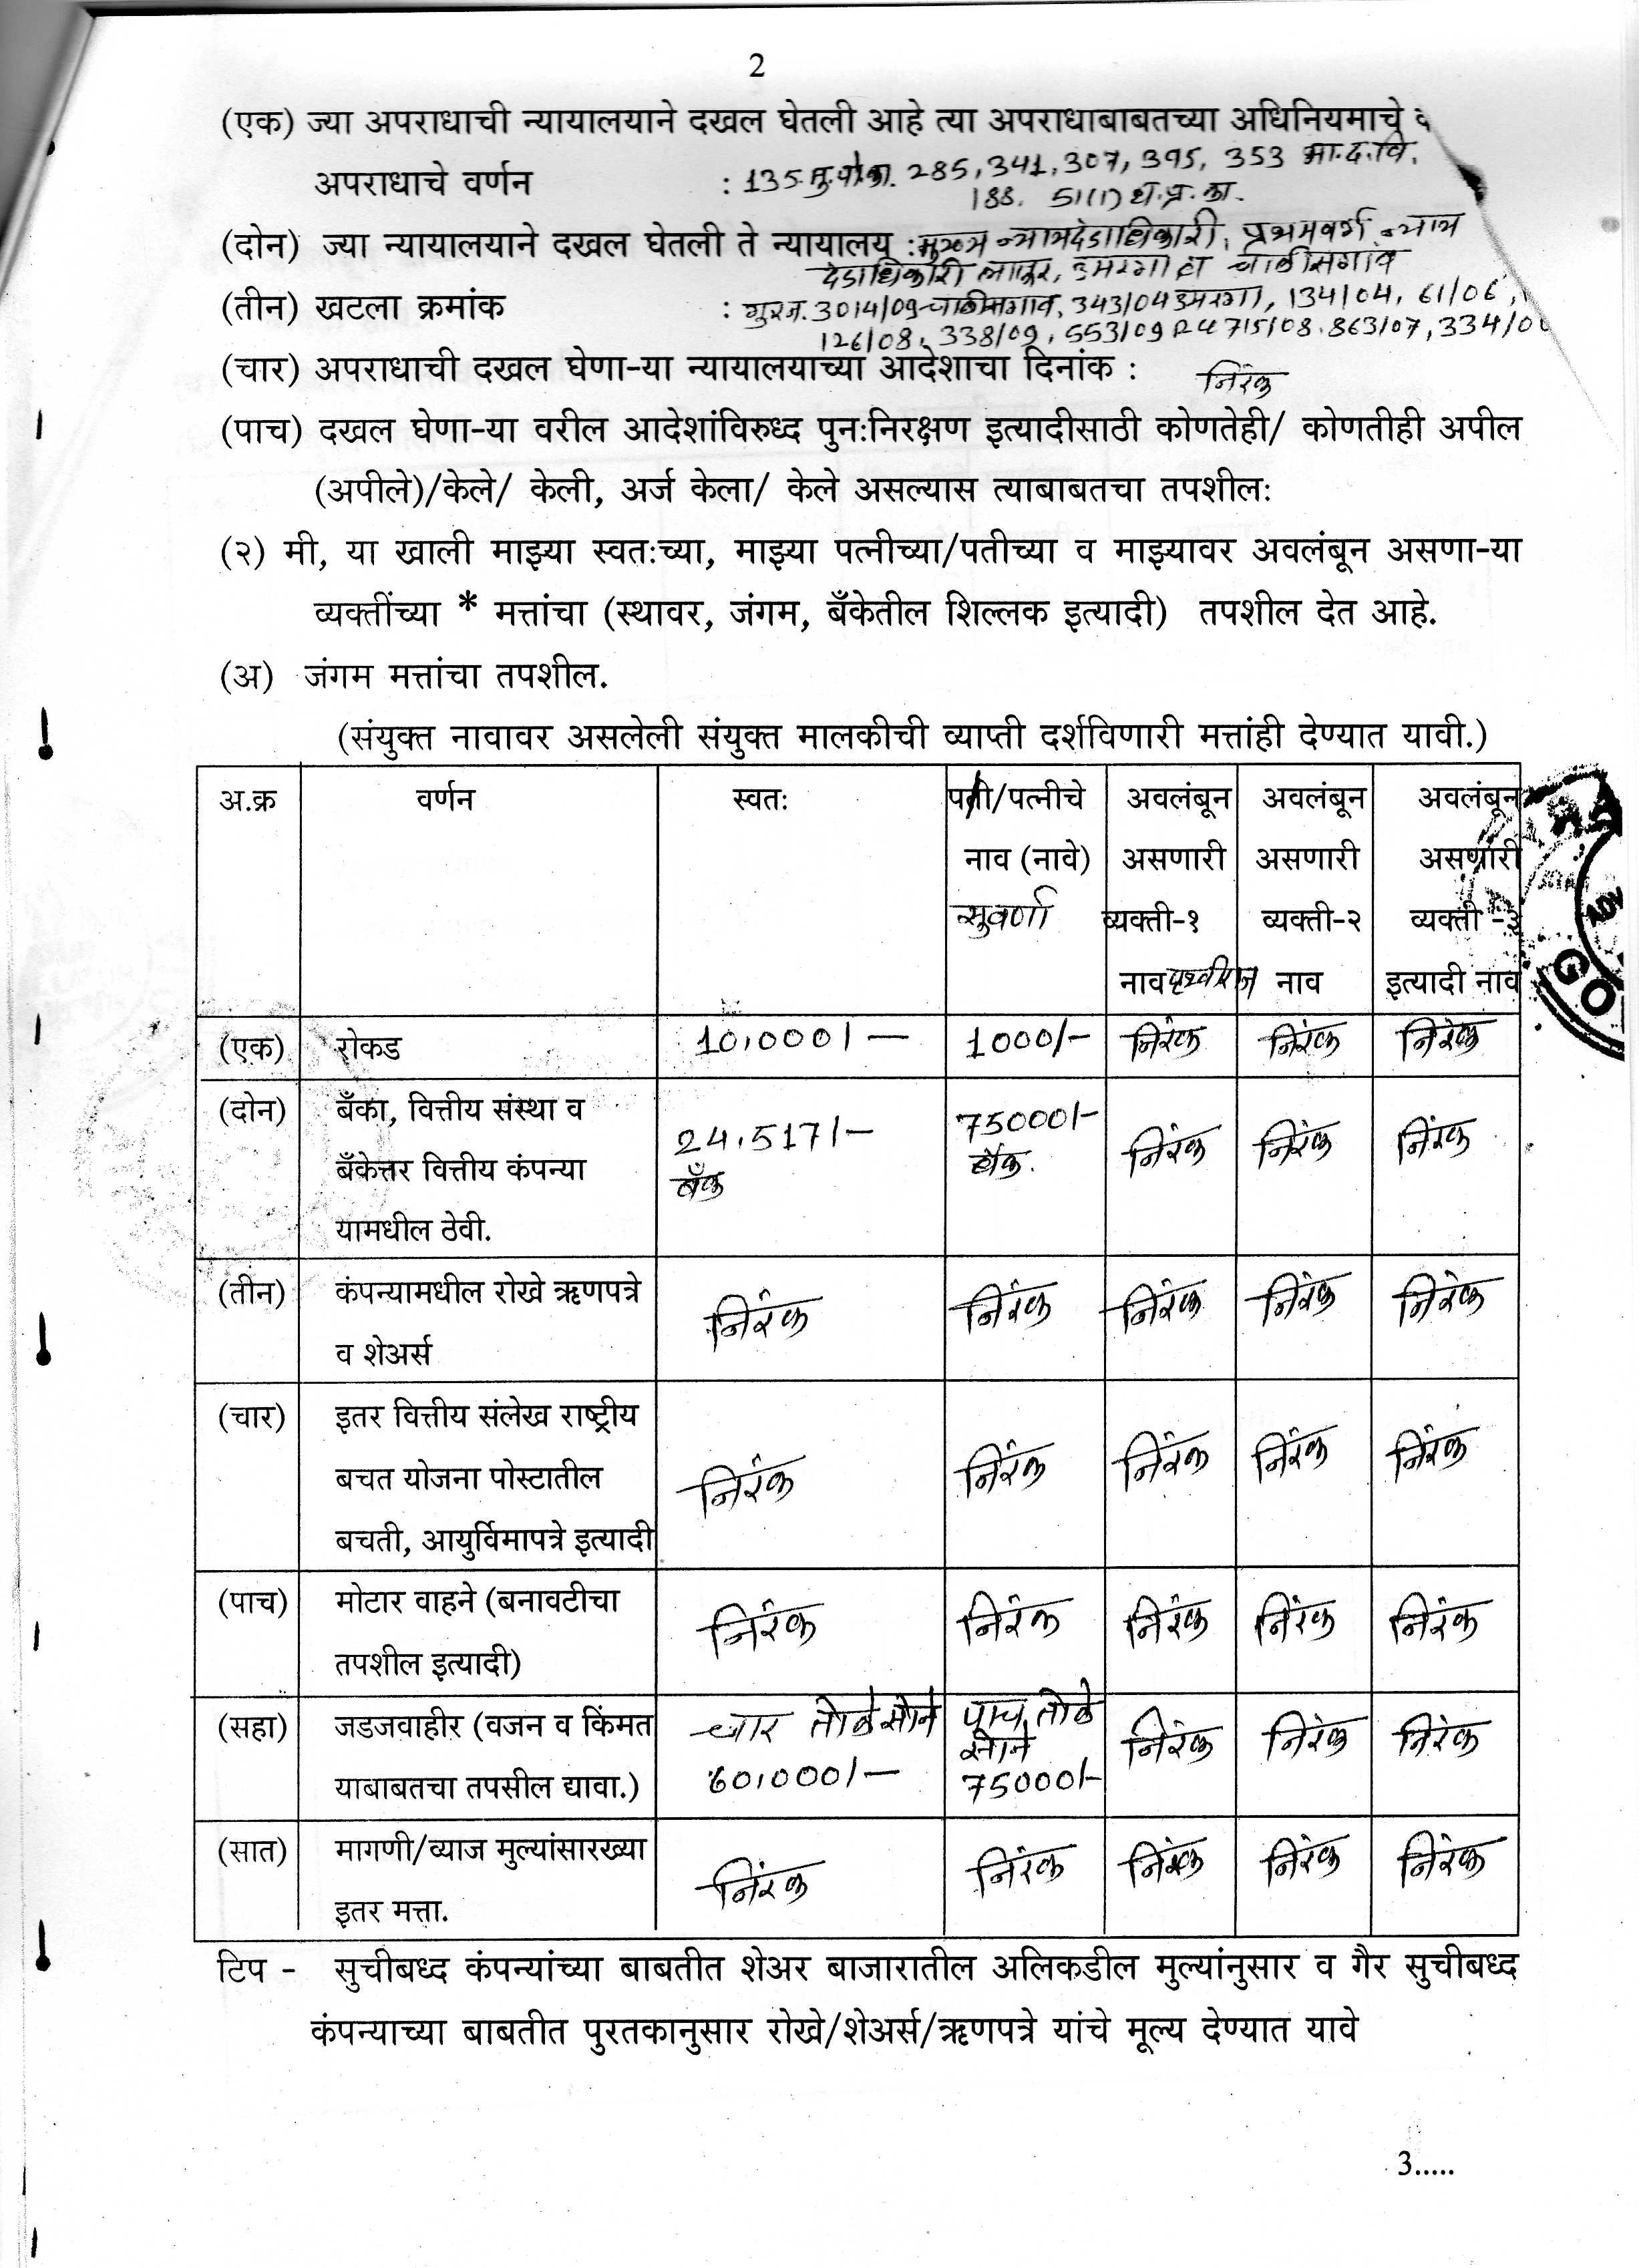 2
(एक) ज्या अपराधाची न्यायालयाने दखल घेतली आहे त्या अपराधाबाबतच्या अधिनियमाचे
अपराधाचे वर्णन : 135 मु.पो.का. 285, 341, 307, 395, 353 भा.द.वि.
188. 51(1)
(दोन) ज्या न्यायालयाने दखल घेतली ते न्यायालय : मुख्य न्यायदंडाधिकारी, प्रथमवर्ग न्याय
दंडाधिकारी लातूर, उमरगा व चाळीसगांव
(तीन) खटला क्रमांक : गुरन. 3014/09 चाळीसगाव, 343/04 उमरगा, 134/04, 61/06,
126/08, 338/09, 553/09 715/08, 863/07, 334/0
(चार) अपराधाची दखल घेणा-या न्यायालयाच्या आदेशाचा दिनांक : निरंक
(पाच) दखल घेणा-या वरील आदेशांविरुध्द पुनःनिरक्षण इत्यादीसाठी कोणतेही/ कोणतीही अपील
(अपीले)/केले/ केली, अर्ज केला/ केले असल्यास त्याबाबतचा तपशीलः
(२) मी, या खाली माझ्या स्वतःच्या, माझ्या पत्नीच्या/पतीच्या व माझ्यावर अवलंबून असणा-या
व्यक्तींच्या * मत्तांचा (स्थावर, जंगम, बँकेतील शिल्लक इत्यादी) तपशील देत आहे.
(अ) जंगम मत्तांचा तपशील.
(संयुक्त नावावर असलेली संयुक्त मालकीची व्याप्ती दर्शविणारी मत्तांही देण्यात यावी.)
अ.क्र वर्णन स्वतः पती/पत्नीचे अवलंबून अवलंबून अवलंबून
नाव (नावे) असणारी असणारी असणारी
सुवर्णा व्यक्ती-१ व्यक्ती-२ व्यक्ती -३
नाव पृथ्वीराज नाव इत्यादी नाव
(एक) रोकड 10,000/- 1000/- निरंक निरंक निरंक
(दोन) बँका, वित्तीय संस्था व 24,517/- 75000/- निरंक निरंक निरंक
बँकेत्तर वित्तीय कंपन्या बँक बँक.
यामधील ठेवी.
(तीन) कंपन्यामधील रोखे ऋणपत्रे निरंक निरंक निरंक निरंक निरंक
व शेअर्स
(चार) इतर वित्तीय संलेख राष्ट्रीय निरंक निरंक निरंक निरंक निरंक
बचत योजना पोस्टातील
बचती, आयुर्विमापत्रे इत्यादी
(पाच) मोटार वाहने (बनावटीचा निरंक निरंक निरंक निरंक निरंक
तपशील इत्यादी)
(सहा) जडजवाहीर (वजन व किंमत चार तोळे सोने पाच तोळे सोने निरंक निरंक निरंक
याबाबतचा तपसील द्यावा.) 60,000/- 75000/-
(सात) मागणी/व्याज मुल्यांसारख्या निरंक निरंक निरंक निरंक निरंक
इतर मत्ता.
टिप - सुचीबध्द कंपन्यांच्या बाबतीत शेअर बाजारातील अलिकडील मुल्यांनुसार व गैर सुचीबध्द
कंपन्याच्या बाबतीत पुरतकानुसार रोखे/शेअर्स/ऋणपत्रे यांचे मूल्य देण्यात यावे
3.....